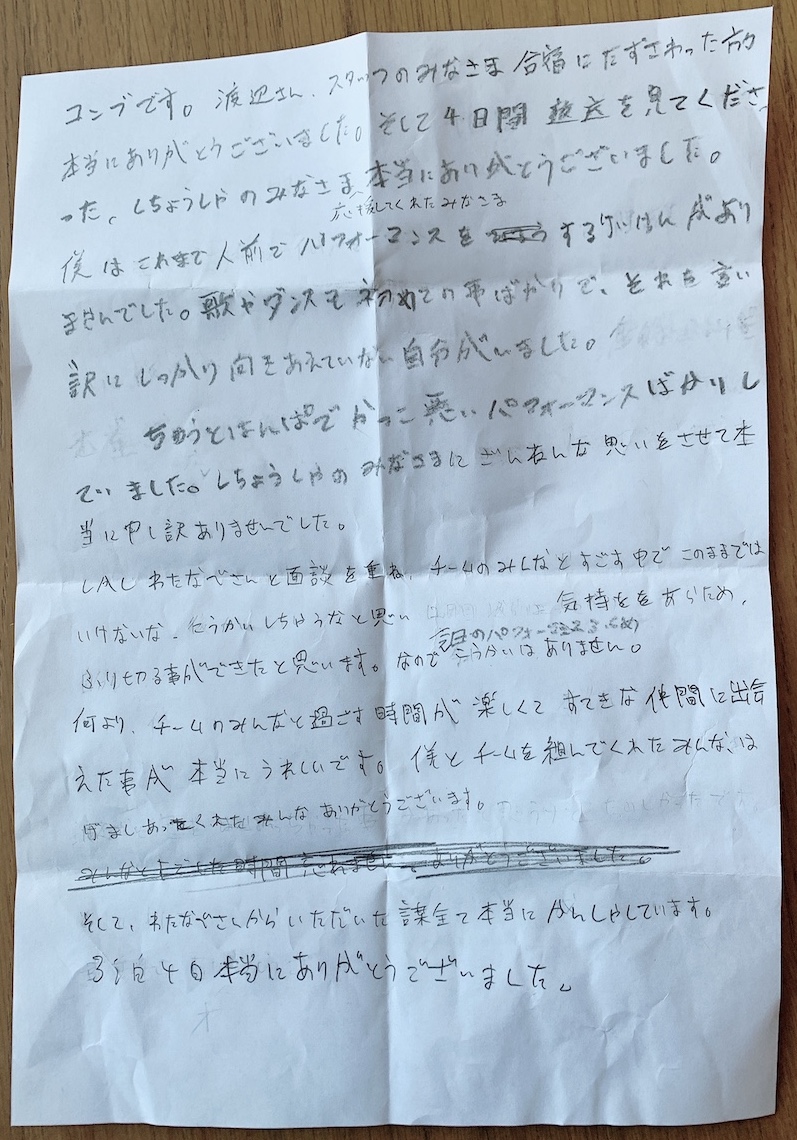 コンブです。渡辺さん、スタッフのみなさま 合宿にたずさわった方々
本当にありがとうございました。そして4日間 放送を見てくださ
った、しちょうしゃのみなさま、本当にありがとうございました。
応援してくれたみなさま
僕はこれまで人前でパフォーマンスをするけいけんがあり
ませんでした。歌やダンスも初めての事ばかりで、それを言い
訳にしっかり向きあえていない自分がいました。
ちゅうとはんぱでかっこ悪いパフォーマンスばかりし
ていました。しちょうしゃのみなさまにざんねんな思いをさせて本
当に申し訳ありませんでした。
しかし わたなべさんと面談を重ね、チームのみんなとすごす中で このままでは
いけないな、こうかいしちゃうなと思い 気持をあらため、
ふり切る事ができたと思います。なので こうかいはありません。
何より、チームのみんなと過ごす時間が 楽しくて すてきな仲間に出会
えた事が 本当にうれしいです。僕とチームを組んでくれたみんな、は
げましあってくれたみんな ありがとうございます。
みんなとすごした時間 ありがとうございました。
そして、わたなべさんからいただいた課金て本当にかんしゃしています。
3泊4日本当にありがとうございました。